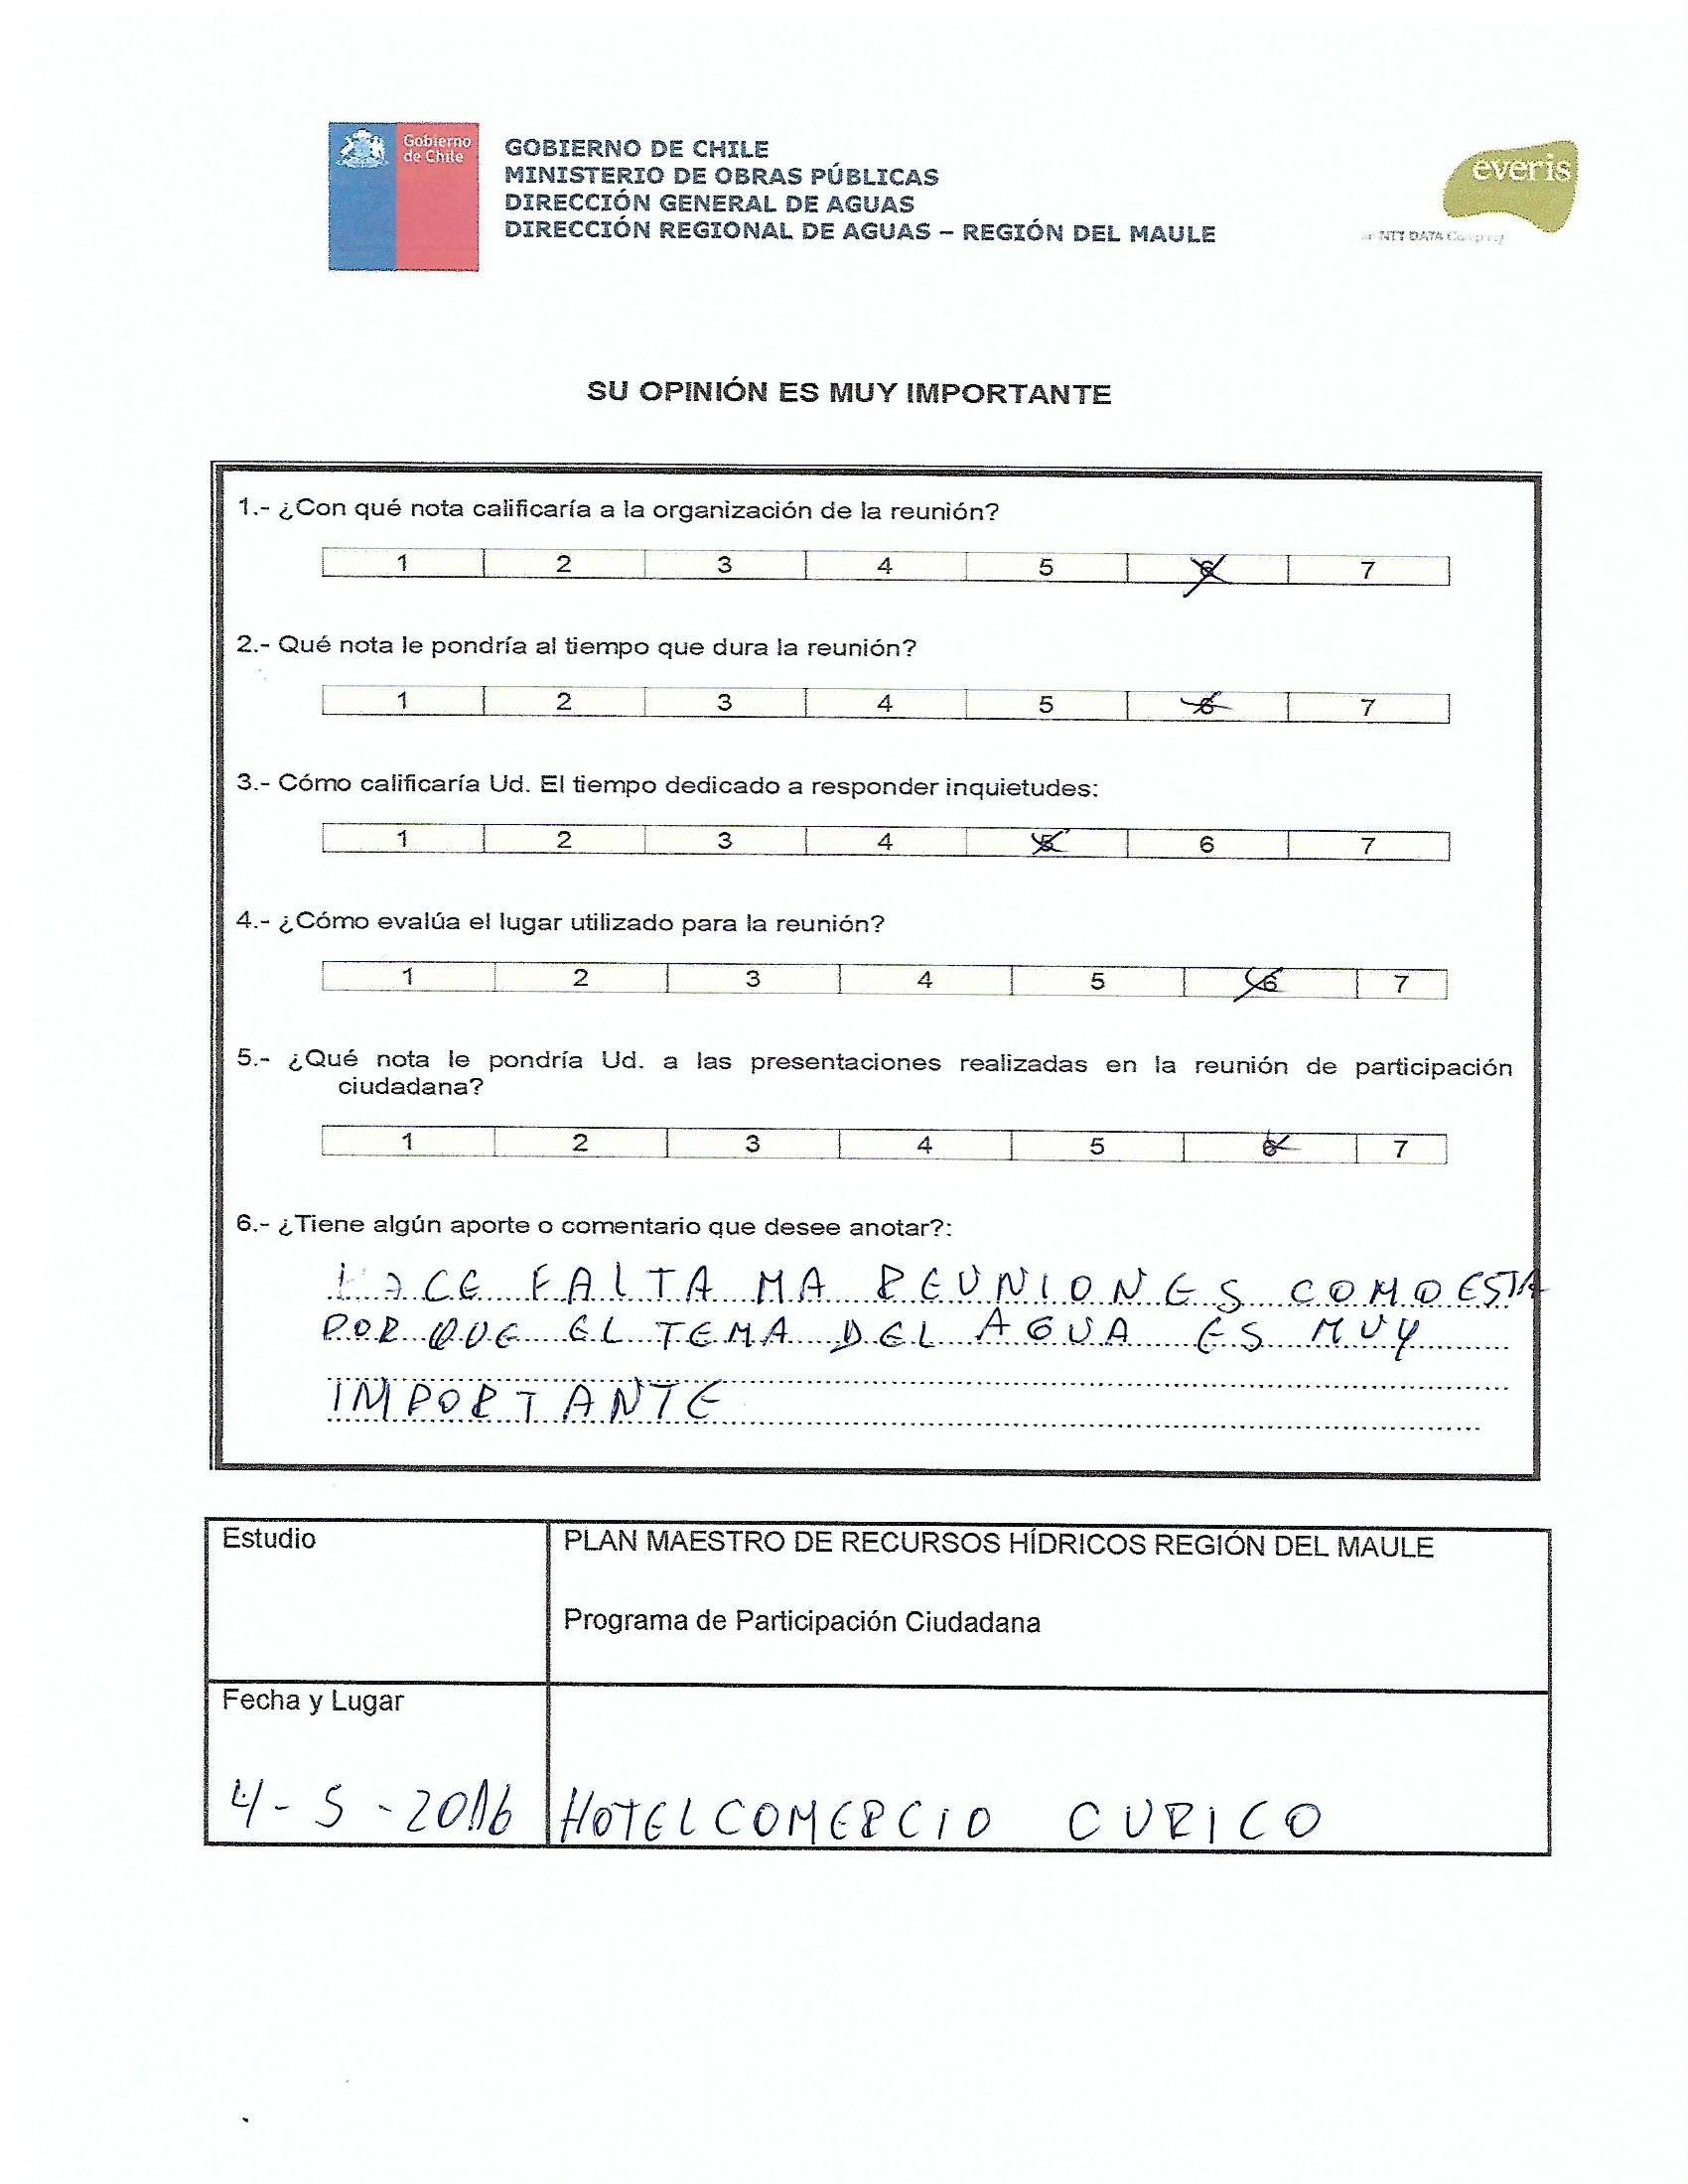 Gobierno
de Chile
GOBIERNO DE CHILE
MINISTERIO DE OBRAS PÚBLICAS
DIRECCIÓN GENERAL DE AGUAS
DIRECCIÓN REGIONAL DE AGUAS – REGIÓN DEL MAULE
everis
an NTT DATA Company
SU OPINIÓN ES MUY IMPORTANTE
1.- ¿Con qué nota calificaría a la organización de la reunión?
1 2 3 4 5 6 7
2.- Qué nota le pondría al tiempo que dura la reunión?
1 2 3 4 5 6 7
3.- Cómo calificaría Ud. El tiempo dedicado a responder inquietudes:
1 2 3 4 5 6 7
4.- ¿Cómo evalúa el lugar utilizado para la reunión?
1 2 3 4 5 6 7
5.- ¿Qué nota le pondría Ud. a las presentaciones realizadas en la reunión de participación
ciudadana?
1 2 3 4 5 6 7
6.- ¿Tiene algún aporte o comentario que desee anotar?:
HACE FALTA MA REUNIONES COMO ESTA
POR QUE EL TEMA DEL AGUA ES MUY
IMPORTANTE
Estudio PLAN MAESTRO DE RECURSOS HÍDRICOS REGIÓN DEL MAULE
Programa de Participación Ciudadana
Fecha y Lugar
4-5-2016 HOTEL COMERCIO CURICO